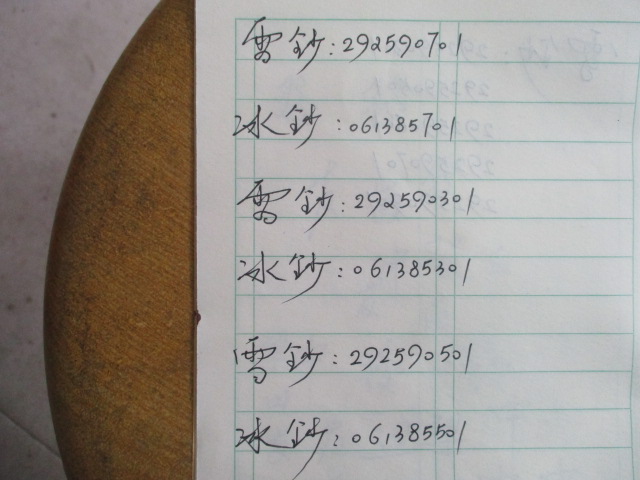 雪鈔:292590701
冰鈔:061385701
雪鈔:292590301
冰鈔:061385301
雪鈔:292590501
冰鈔:061385501